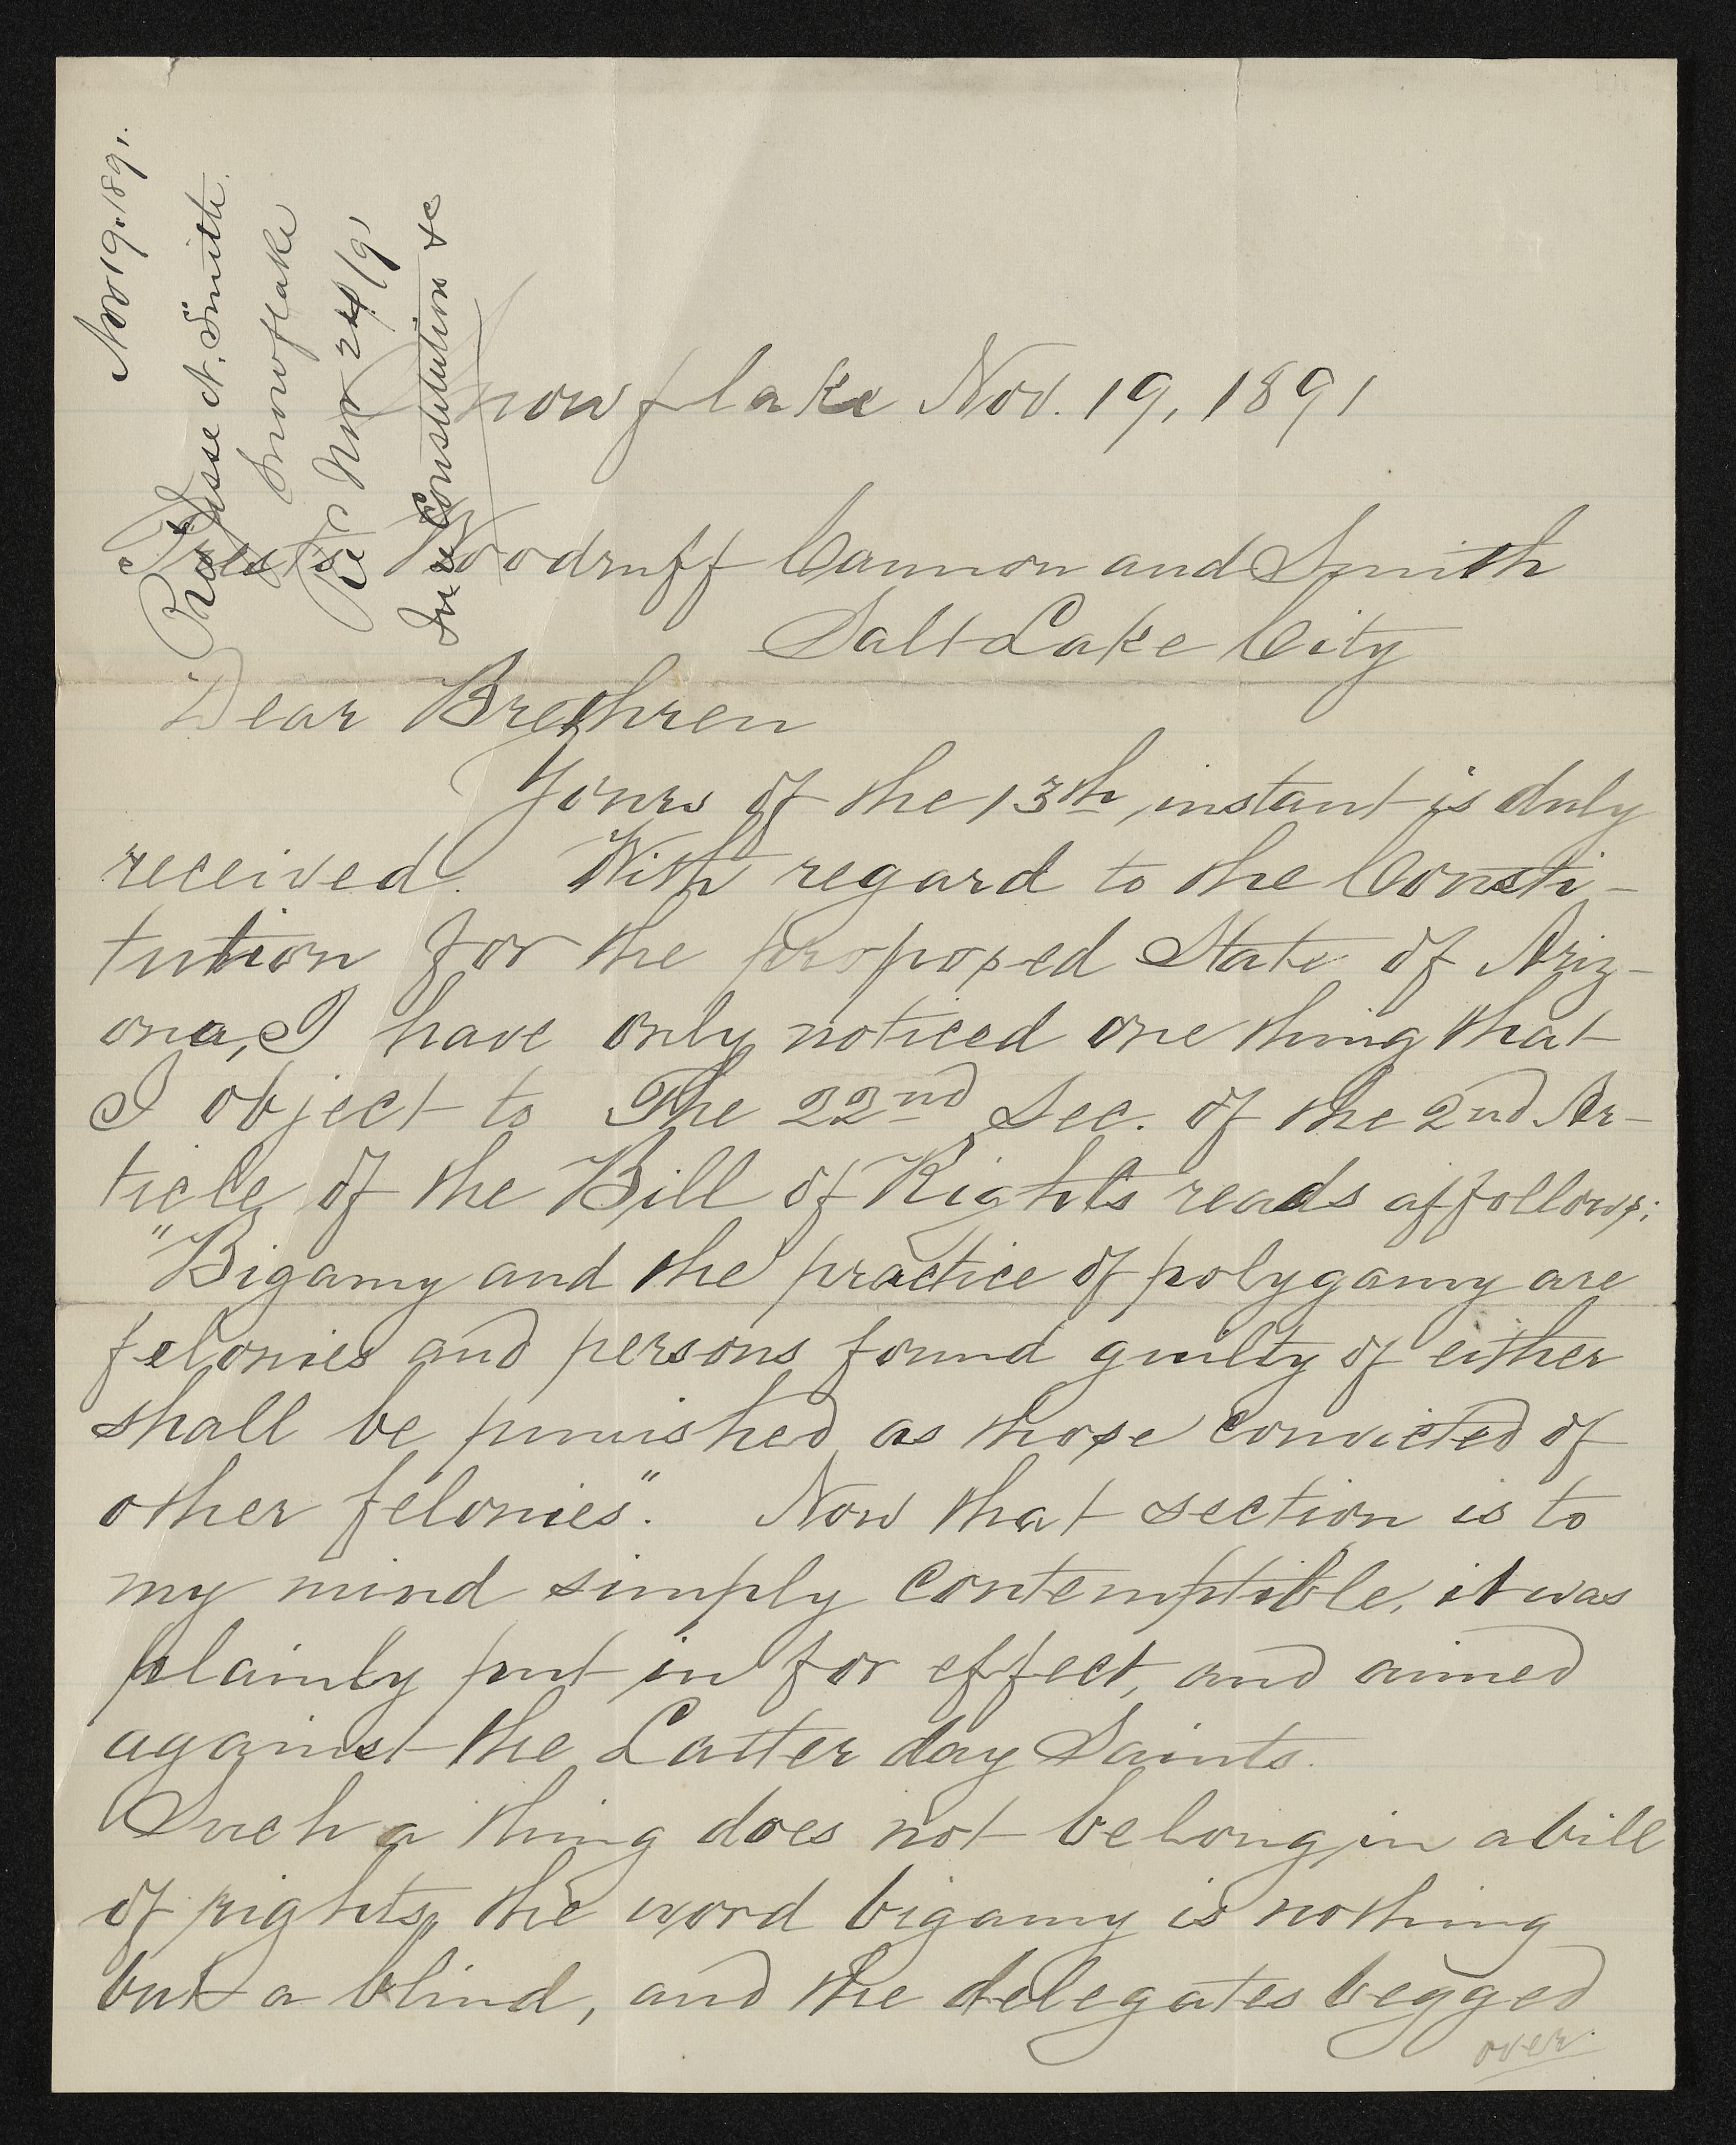 Nov 19. 1891.
Pres Jesse N. Smith.
Snowflake
Rec Nov 24/91
In re Constitution &c
Snowflake Nov. 19, 1891
Prests Woodruff Cannon and Smith
Salt Lake City
Dear Brethren
Yours of the 13th, instant is duly
received. With regard to the Consti-
tution for the proposed State of Ariz-
ona, I have only noticed one thing that
I object to The 22nd Sec. of the 2nd Ar-
ticle of the Bill of Rights reads as follows;
"Bigamy and the practice of polygamy are
felonies and persons found guilty of either
shall be punished as those convicted of
other felonies". Now that section is to
my mind simply contemptible, it was
plainly put in for effect, and aimed
against the Latter day Saints.
Such a thing does not belong in a bill
of rights, the word bigamy is nothing
but a blind, and the delegates begged
over